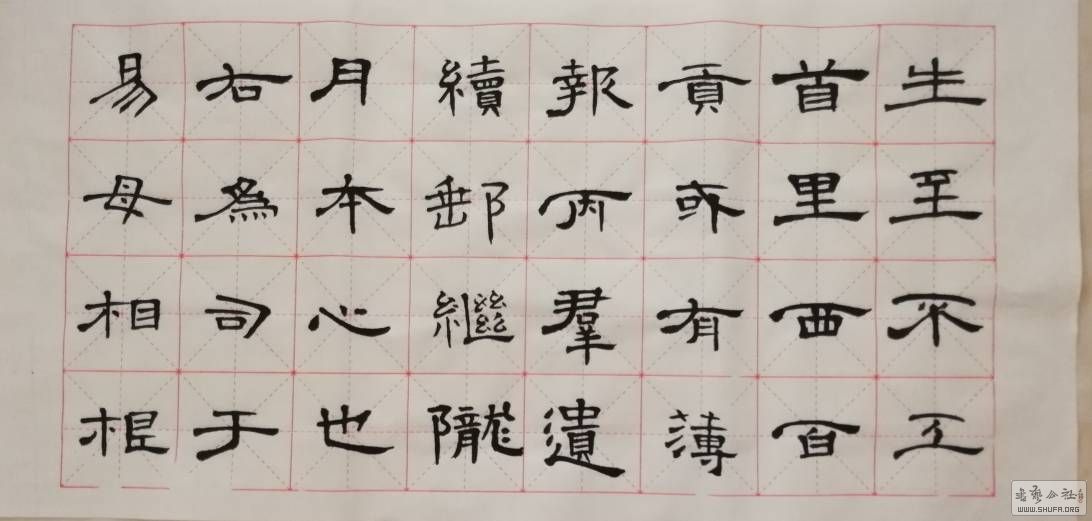 生至不工
首里西百
貢或有薄
報丙羣遺
續郵繼隴
月本心也
右爲司于
易母相根
书艺公社
WWW.SHUFA.ORG